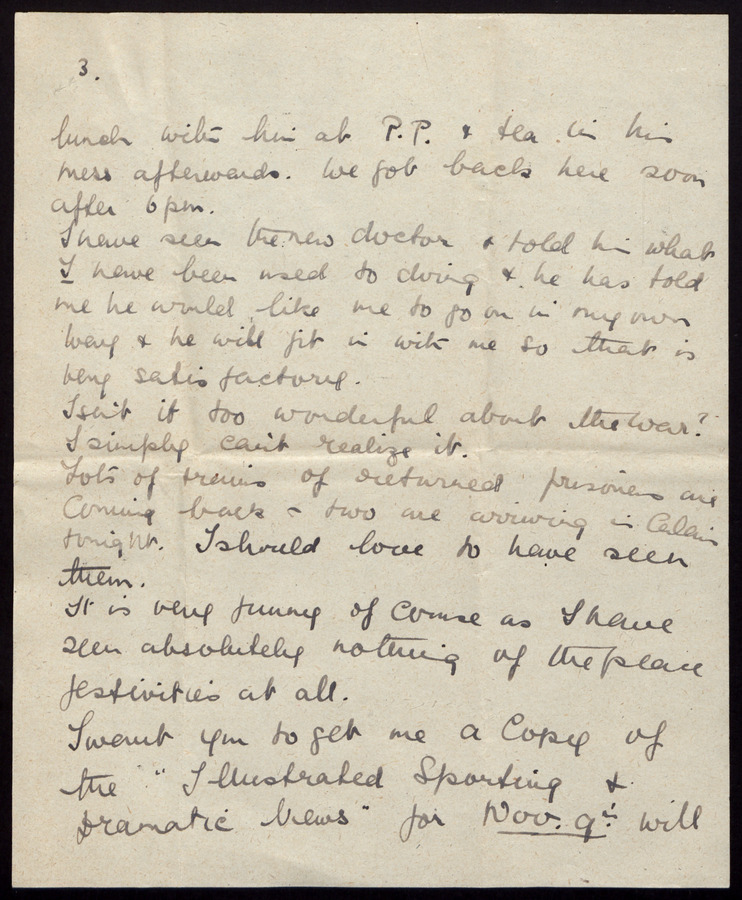 3.
lunch with him at P.P. & tea in his
mess afterwards. We got back here soon
after 6 pm.
I have seen the new doctor & told him what
I have been used to doing & he has told
me he would like me to go on in my own
way & he will fit in with me so that is
very satisfactory.
Isn't it too wonderful about the war?
I simply can't realize it.
Lots of trains of returned prisoners are
coming back & two are arriving in Calais
tonight. I should love to have seen
them.
It is very funny of course as I have
seen absolutely nothing of the peace
festivities at all.
I want you to get me a Copy of
the "Illustrated Sporting &
Dramatic News" for Nov. 9th will